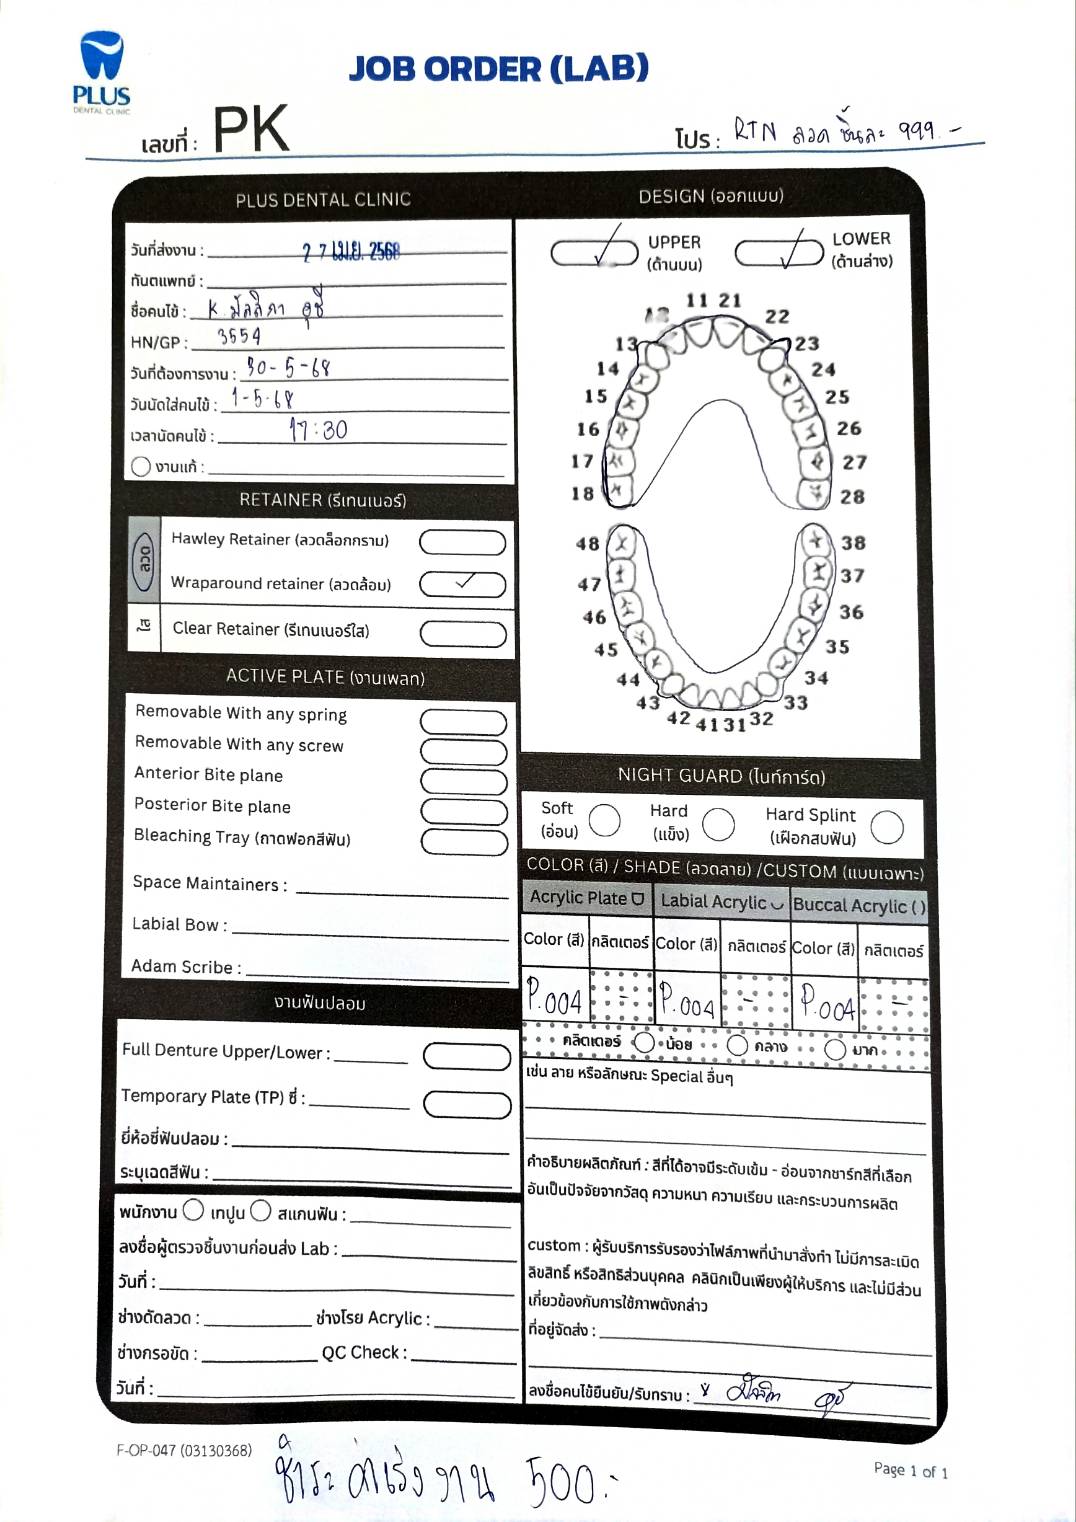 PLUS
DENTAL CLINIC
JOB ORDER (LAB)
เลขที่ : PK
โปร : RTN ลวด ชิ้นละ 999.-
PLUS DENTAL CLINIC
วันที่ส่งงาน : 27 เม.ย. 2568
ทันตแพทย์ :
ชื่อคนไข้ : K. มัลลิกา
HN/GP : 3554
วันที่ต้องการงาน : 30-5-68
วันนัดใส่คนไข้ : 1-5-68
เวลานัดคนไข้ : 17:30
งานแก้ :
RETAINER (รีเทนเนอร์)
ลวด
Hawley Retainer (ลวดล็อกกราม)
Wraparound retainer (ลวดล้อม) ✓
ใส
Clear Retainer (รีเทนเนอร์ใส)
ACTIVE PLATE (งานเพลท)
Removable With any spring
Removable With any screw
Anterior Bite plane
Posterior Bite plane
Bleaching Tray (ถาดฟอกสีฟัน)
Space Maintainers :
Labial Bow :
Adam Scribe :
งานฟันปลอม
Full Denture Upper/Lower :
Temporary Plate (TP) ซี่ :
ยี่ห้อซี่ฟันปลอม :
ระบุเฉดสีฟัน :
พนักงาน เทปูน สแกนฟัน :
ลงชื่อผู้ตรวจชิ้นงานก่อนส่ง Lab :
วันที่ :
ช่างดัดลวด : ช่างโรย Acrylic :
ช่างกรอขัด : QC Check :
วันที่ :
DESIGN (ออกแบบ)
✓ UPPER ✓ LOWER
(ด้านบน) (ด้านล่าง)
11 21
12 22
13 23
14 24
15 25
16 26
17 27
18 28
48 38
47 37
46 36
45 35
44 34
43 33
42 41 31 32
NIGHT GUARD (ไนท์การ์ด)
Soft Hard Hard Splint
(อ่อน) (แข็ง) (เฝือกสบฟัน)
COLOR (สี) / SHADE (ลวดลาย) /CUSTOM (แบบเฉพาะ)
Acrylic Plate Labial Acrylic Buccal Acrylic ( )
Color (สี) กลิตเตอร์ Color (สี) กลิตเตอร์ Color (สี) กลิตเตอร์
P.004 - P.004 - P.004 -
กลิตเตอร์ น้อย กลาง มาก
เช่น ลาย หรือลักษณะ Special อื่นๆ
คำอธิบายผลิตภัณฑ์ : สีที่ได้อาจมีระดับเข้ม - อ่อนจากชาร์ทสีที่เลือก
อันเป็นปัจจัยจากวัสดุ ความหนา ความเรียบ และกระบวนการผลิต
custom : ผู้รับบริการรับรองว่าไฟล์ภาพที่นำมาสั่งทำ ไม่มีการละเมิด
ลิขสิทธิ์ หรือสิทธิส่วนบุคคล คลินิกเป็นเพียงผู้ให้บริการ และไม่มีส่วน
เกี่ยวข้องกับการใช้ภาพดังกล่าว
ที่อยู่จัดส่ง :
ลงชื่อคนไข้ยืนยัน/รับทราบ :
F-OP-047 (03130368)
Page 1 of 1
ชำระค่าเร่งงาน 500.-